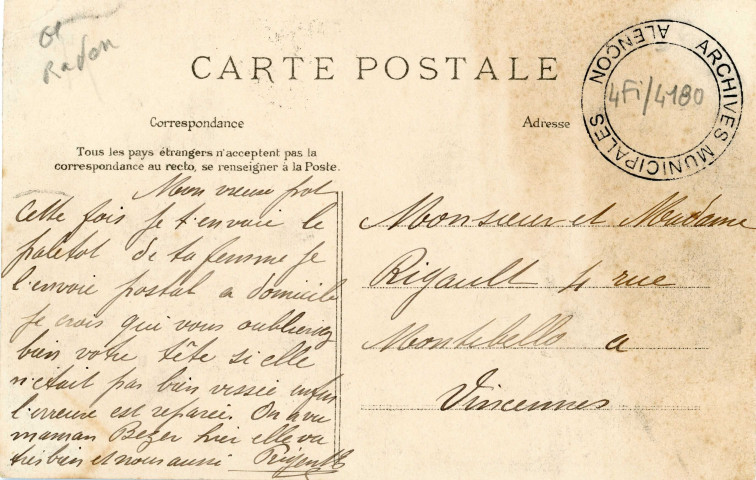 61
Radon
CARTE POSTALE
ARCHIVES MUNICIPALES
ALENÇON
4Fi/4180
Correspondance
Adresse
Tous les pays étrangers n'acceptent pas la
correspondance au recto, se renseigner à la Poste.
Mon vieux
Cette fois je t'envoie le
paletot de ta femme je
l'envoie postal a domicile
je crois qui vous oublieriez
bien votre tête si elle
n'était pas bien vissée enfin
l'erreure est reparée. On a vu
maman Bezer hier elle va
très bien et nous aussi Rigault
Monsieur et Madame
Rigault 4 rue
Montebello a
Vincennes